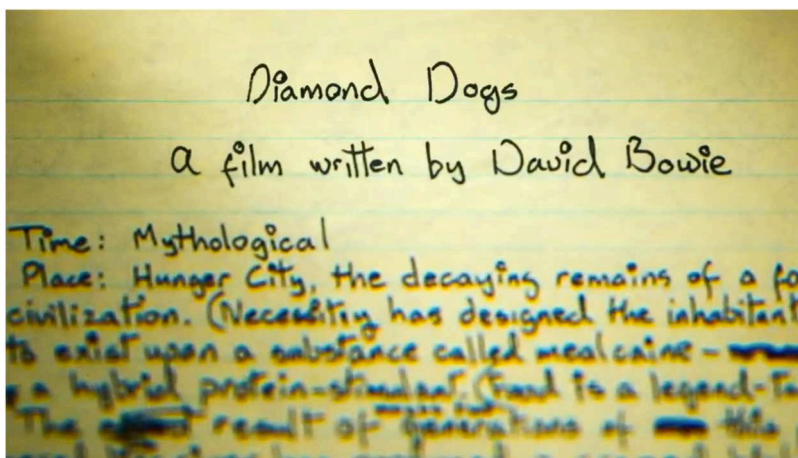 Diamond Dogs
a film written by David Bowie
Time: Mythological
Place: Hunger City, the decaying remains of a fo
civilization. (Necessity has designed the inhabitant
to exist upon a substance called mealcaine -
a hybrid protein-stimulant. (Food is a legend-
The result of generations of this